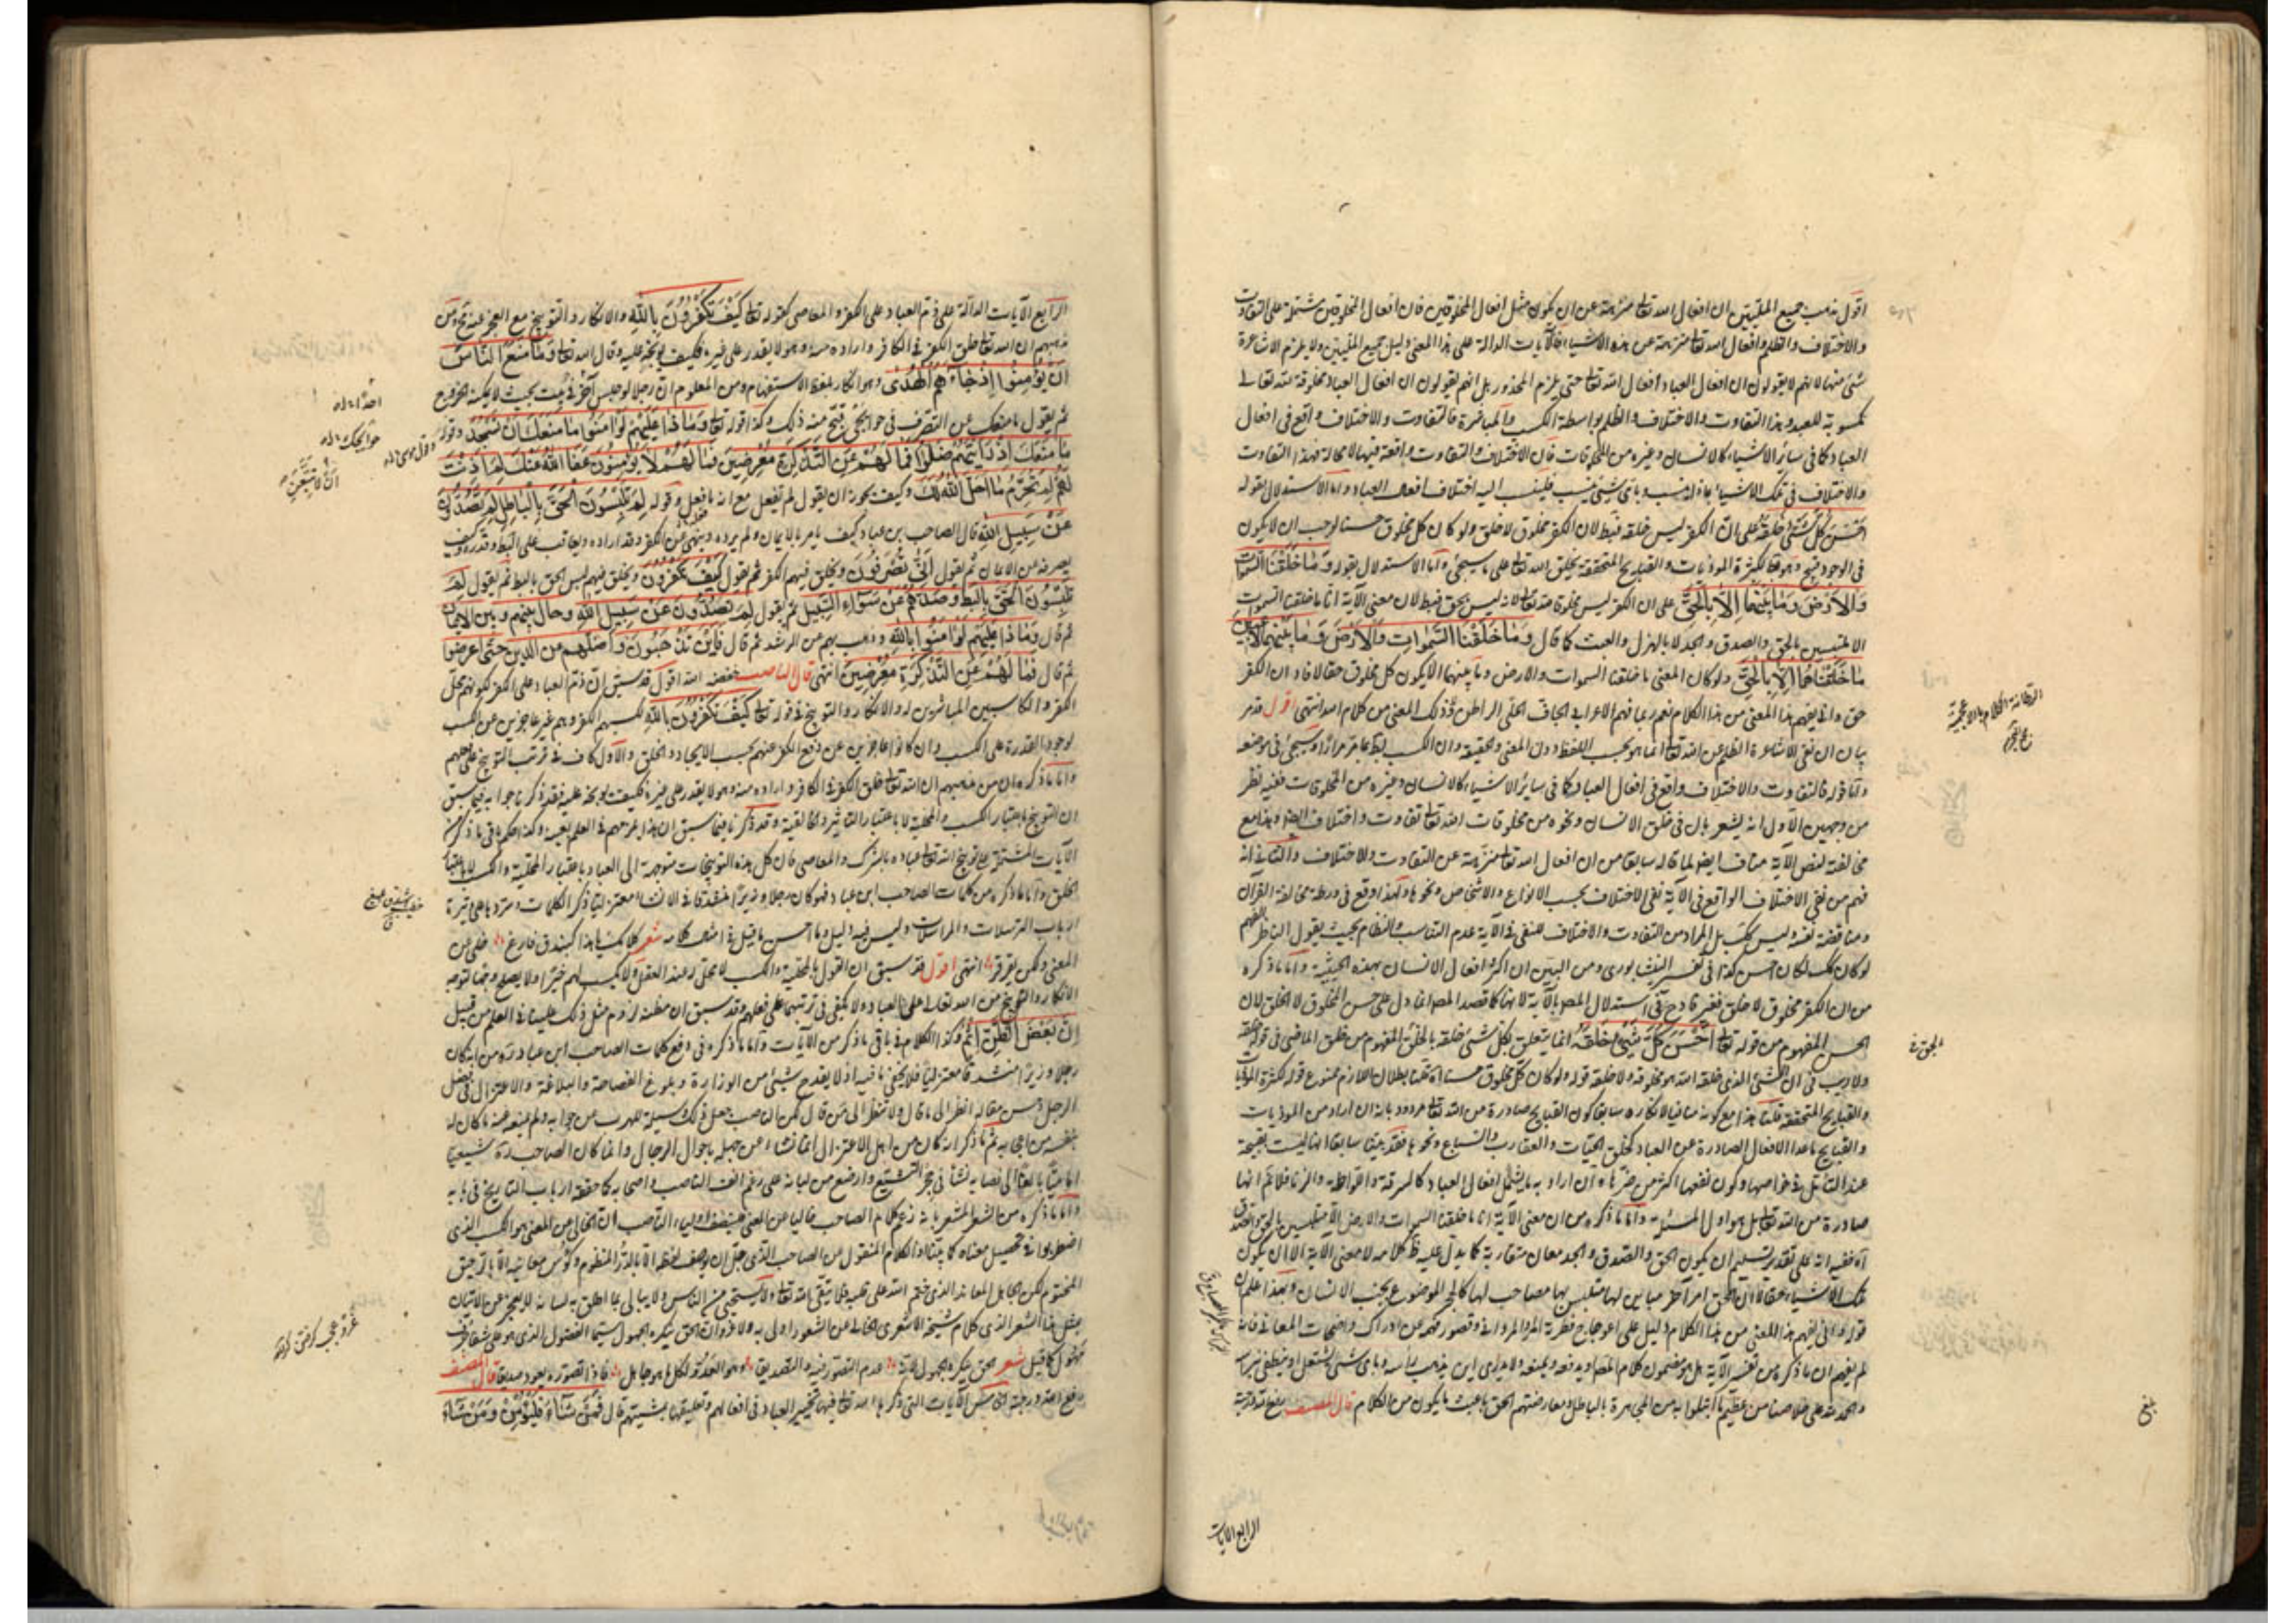 اقول مذهب جميع المليين ان افعال الله تعالى منزهة عن ان يكون مثل افعال المخلوقين فان افعال المخلوقين مشتملة على التفاوت
والاختلاف والظلم وافعال الله تعالى منزهة عن هذه الاشياء فالآيات الدالة على هذا المعنى دليل جميع المليين ولا يلزم الاشاعرة
شئ منها لانهم لا يقولون ان افعال العباد افعال الله تعالى حتى يلزم المحذور بل انهم يقولون ان افعال العباد مخلوقة لله تعالى
مكسوبة للعبد وهذا التفاوت والاختلاف والظلم بواسطة الكسب والمباشرة فالتفاوت والاختلاف واقع في افعال
العباد كما في سائر الاشياء كالانسان وغيره من المخلوقات فان الاختلاف والتفاوت واقعة فيها لا محالة فهذا التفاوت
والاختلاف في تلك الاشياء بماذا ينسب وباي شئ ينسب فينسب اليه اختلاف افعال العباد واما الاستدلال بقوله
احسن كل شئ خلقه على ان الكفر ليس خلقه فبط لان الكفر مخلوق لا خلق ولو كان كل مخلوق حسنا لوجب ان لا يكون
في الوجود قبيح وهو بط لكثرة الموذيات والقبايح المتحققة بخلق الله تعالى على ما سيجئ واما الاستدلال بقوله وما خلقنا السموات
والارض وما بينهما الا بالحق على ان الكفر ليس مخلوقا لله تعالى لانه ليس بحق فبط لان معنى الآية انا ما خلقنا السموات
الا متلبسين بالحق والصدق والجد لا بالهزل والعبث كما قال وما خلقنا السموات والارض وما بينهما لاعبين
ما خلقناهما الا بالحق ولو كان المعنى ما خلقنا السموات والارض وما بينهما الا يكون كل مخلوق حقا لافاد ان الكفر
حق وانى يفهم هذا المعنى من هذا الكلام نعم ربما فهم الاعرابي الجاف الحلي الراطن ذلك المعنى من كلام الله انتهى اقول قد مر
بيان ان نفي الاشاعرة الظلم عن الله تعالى انما هو بحسب اللفظ دون المعنى والحقيقة وان الكسب بط بما مر مرارا وسيجئ في موضعه
واما قوله فالتفاوت والاختلاف واقع في افعال العباد كما في سائر الاشياء كالانسان وغيره من المخلوقات ففيه نظر
من وجهين الاول انه يشعر بان في خلق الانسان ونحوه من مخلوقات الله تعالى تفاوت واختلاف ايضا وهذا مع
مخالفته لنص الآية مناف ايضا لما قاله سابقا من ان افعال الله تعالى منزهة عن التفاوت والاختلاف والثاني انه
فهم من نفي الاختلاف الواقع في الآية نفي الاختلاف بحسب الانواع والاشخاص ونحوها ولهذا وقع في ورطة مخالفة القرآن
ومناقضة نفسه وليس كك بل المراد من التفاوت والاختلاف المنفي في الآية عدم التناسب والنظام بحيث يقول الناظر الفهم
لو كان كك لكان احسن كذا في تفسير النيشابوري ومن البين ان اكثر افعال الانسان بهذه الحيثية واما ما ذكره
من ان الكفر مخلوق لا خلق فغير قادح في استدلال المص بالآية لانها كما قصد المص انما دل على حسن المخلوق لا الخلق لان
الحسن المفهوم من قوله تعالى احسن كل شئ خلقه انما يتعلق بكل شئ خلقه لا بالخلق المفهوم من خلق الماضي في قوله خلقه
ولا ريب في ان الشئ الذي خلقه الله هو مخلوقه ولا خلقه قوله ولو كان كل مخلوق حسنا اه قلنا بطلان اللازم ممنوع قوله لكثرة الموذيات
والقبايح المتحققة قلنا هذا مع كونه منافيا لانكاره سابقا كون القبايح صادرة من الله تعالى مردود بانه ان اراد من الموذيات
والقبايح ما عدا الافعال الصادرة عن العباد كخلق الحيات والعقارب والسباع ونحوها فقد بينا سابقا انها ليست بقبيحة
عند التامل في خواصها وكون نفعها اكثر من ضرها وان اراد به ما يشمل افعال العباد كالسرقة واللواطة والزنا فلا نم انها
صادرة من الله تعالى بل هو اول المسئلة واما ما ذكره من ان معنى الآية انا ما خلقنا السموات والارض الا متلبسين بالحق والصدق
اه ففيه انه على تقدير تسليم ان يكون الحق والصدق والجد معان متقاربة كما يدل عليه ظ كلامه لا معنى الآية الا ان يكون
تلك الاشياء حقة لا ان الحق امر آخر مباين لها متلبس بها مصاحب لها كالحجر الموضوع بجنب الانسان وبهذا علم ان
قوله وانى يفهم هذا المعنى من هذا الكلام دليل على اعوجاج فطرة المرء المرواني وقصور فهمه عن ادراك واضحات المعاني فانه
لم يفهم ان ما ذكره من تفسير الآية بل هو مضمون كلام المص او يدفعه ويمنعه ولا يدري اين يذهب براسه وباي شئ يشتعل او ينطفي نبراسه
والحمد لله على خلاصنا من عظيم ما ابتلوا به من المجاهرة بالباطل ومعارضتهم الحق بما عبث ما يكون من الكلام قال المصنف رفع الله درجته
الرابع الآيات
بلغ
الرابع الآيات الدالة على ذم العباد على الكفر والمعاصي كقوله تعالى كيف تكفرون بالله والانكار والتوبيخ مع العجز عنه محال ومن
مذهبهم ان الله تعالى خلق الكفر في الكافر واراده منه وهو لا يقدر على غيره فكيف يوبخه عليه وقال الله تعالى وما منع الناس
ان يؤمنوا اذ جاءهم الهدى وهو انكار بلفظ الاستفهام ومن المعلوم ان رجلا لو حبس آخر في بيت بحيث لا يمكنه الخروج
ثم يقول ما منعك من التصرف في حوائجي قبح منه ذلك وكذا قوله تعالى وماذا عليهم لو آمنوا ما منعك ان تسجد وقوله
ما منعك اذ رايتهم ضلوا فما لهم عن التذكرة معرضين فما لهم لا يؤمنون عفا الله عنك لم اذنت
لهم لم تحرم ما احل الله لك وكيف يجوز ان يقول لم تفعل مع انه ما فعل وقوله لم تلبسون الحق بالباطل لم تصدون
عن سبيل الله قال الصاحب بن عباد كيف يامر بالايمان ولم يرده وينهى عن الكفر وقد اراده ويعاقب على الباطل وقدره وكيف
يصرفه عن الايمان ثم يقول انى تصرفون ويخلق فيهم الكفر ثم يقول كيف تكفرون ويخلق فيهم لبس الحق بالباطل ثم يقول لم
تلبسون الحق بالباطل وصدهم عن سواء السبيل ثم يقول لم تصدون عن سبيل الله وحال بينهم وبين الايمان
ثم قال وماذا عليهم لو آمنوا بالله وذهب بهم من الرشد ثم قال فاين تذهبون واضلهم من الدين حتى اعرضوا
ثم قال فما لهم عن التذكرة معرضين انتهى قال الناصب خفضه الله اقول قد سبق ان ذم العباد على الكفر لكونهم محل
الكفر والكاسبين المباشرين له والانكار والتوبيخ في قوله تعالى كيف تكفرون بالله لكسبهم الكفر وهم غير عاجزين عن الكسب
لوجود القدرة على الكسب وان كانوا عاجزين عن دفع الكفر عنهم بحسب الايجاد والخلق والاول كاف في ترتب التوبيخ عليهم
واما ما ذكره ان من مذهبهم ان الله تعالى خلق الكفر في الكافر واراده منه وهو لا يقدر على غيره فكيف يوبخه عليه فقد ذكرنا جوابه فيما سبق
ان التوبيخ باعتبار الكسب والمحلية لا باعتبار التاثير والخالقية وقد ذكرنا فيما سبق ان هذا يلزمهم في العلم بعينه وكذا حكم باقي ما ذكر من
الآيات المشتملة على توبيخ الله تعالى عباده بالشرك والمعاصي فان كل هذه التوبيخات متوجهة الى العباد باعتبار المحلية والكسب لا باعتبار
الخلق واما ما ذكره من كلمات الصاحب ابن عباد فهو كان رجلا وزيرا متشدقا في الانشاء معتزليا ذكر الكلمات وسردها على وتيرة
ارباب الترسلات والمراسلات وليس فيه دليل وما احسن ما قيل في امثال كلامه شعر كلامك يا هذا كبندق فارغ خلي من
المعنى ولكن يقرقر انتهى اقول قد سبق ان القول بالمحلية والكسب لا محل له عند العقل ولا يكسب لهم خيرا ولا يصلح وجها لتوجه
الانكار والتوبيخ من الله تعالى على العباد ولا يكفي في ترتبهما على فعلهم وقد سبق ان مظنة لزوم مثل ذلك علينا في العلم من قبيل
ان بعض الظن اثم وكذا الكلام في باقي ما ذكر من الآيات واما ما ذكره في دفع كلمات الصاحب ابن عباد ره من انه كان
رجلا وزيرا متشدقا معتزليا فلا يخفى ما فيه اذ لا يقدح شئ من الوزارة وبلوغ الفصاحة والبلاغة والاعتزال في فضل
الرجل وحسن مقاله انظر الى ما قال ولا تنظر الى من قال لكن الناصب جعل ذلك وسيلة للهرب من جوابه ولم ينبعث منه ما كان له
بنفسه من اعجابه ثم ما ذكر انه كان من اهل الاعتزال انما نشاء عن جهله باحوال الرجال وانما كان الصاحب ره شيعيا
اماميا بالغا الى نصابه نشأ في حجر التشيع وارضع من لبانه على رغم انف الناصب واصحابه كما حققه ارباب التاريخ في بابه
واما ما ذكره من الشعر المشعر بانه زعم كلام الصاحب خاليا عن المعنى فينصف اولياء الناصب ان الخالي من المعنى هو الكسب الذي
اضطربوا في تحصيل معناه كما بيناه لا الكلام المنقول من الصاحب الذي جل ان يوصف لفظه الا بالدر المنظوم وكؤس معانيه الا بالرحيق
المختوم لكن الجاهل المعاند الذي ختم الله على قلبه فلا يتقي الله تعالى ولا يستحيي من الناس ولا يبالي بما اطلق به لسانه لا يعجز عن الاتيان
بمثل هذا الشعر الذي كلام شيخه الاشعري الخالي عن الشعور اولى به ولا غرو ان الحق ينكره الجهول سيما الفضول الذي هو على شفا جرف
مهول كما قيل شعر الحق ينكره الجهول لانه عدم التصور فيه والتصديقا وهو العدو لكل ما هو جاهل فاذا تصوره يعود صديقا قال المصنف
رفع الله درجته الخامس الآيات التي ذكر الله تعالى فيها تخيير العباد في افعالهم وتعليقها بمشيتهم قال فمن شاء فليؤمن ومن شاء